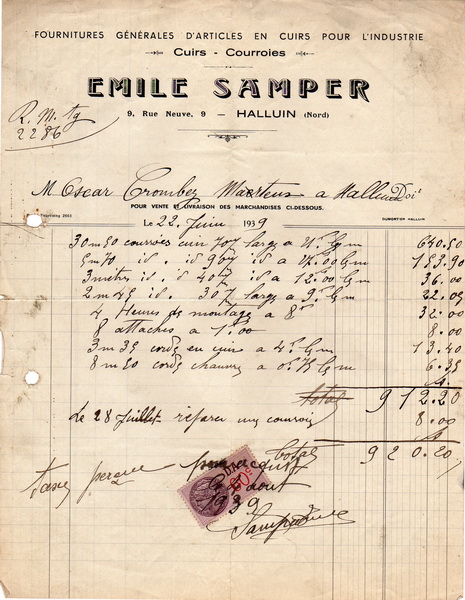 FOURNITURES GÉNÉRALES D'ARTICLES EN CUIRS POUR L'INDUSTRIE
Cuirs - Courroies
EMILE SAMPER
9, Rue Neuve, 9 — HALLUIN (Nord)
R. M. Tg
2286
M Oscar Crombez Maertens a Halluin Doit
POUR VENTE ET LIVRAISON DES MARCHANDISES CI-DESSOUS.
2553 DUMORTIER HALLUIN
Le 22 Juin 1939
30m50 courroies cuir 70% large a 21f. le m 640.50
5m70 id. id 90% id a 27.00 le m 153.90
3 mètres id. id. 40% id a 12.00 le m 36.00
2m45 id. 30% large a 9f. le m 22.05
4 Heures de montage a 8f 32.00
8 attaches a 1.00 8.00
3m35 corde en cuir a 4f. le m 13.40
8m50 corde chanvre a 0f.75 le m 6.35
total 912.20
Le 28 Juillet réparer une courroie 8.00
total 920.20
Taxe perçue pour acquit
Le aout
1939
Samper Emile